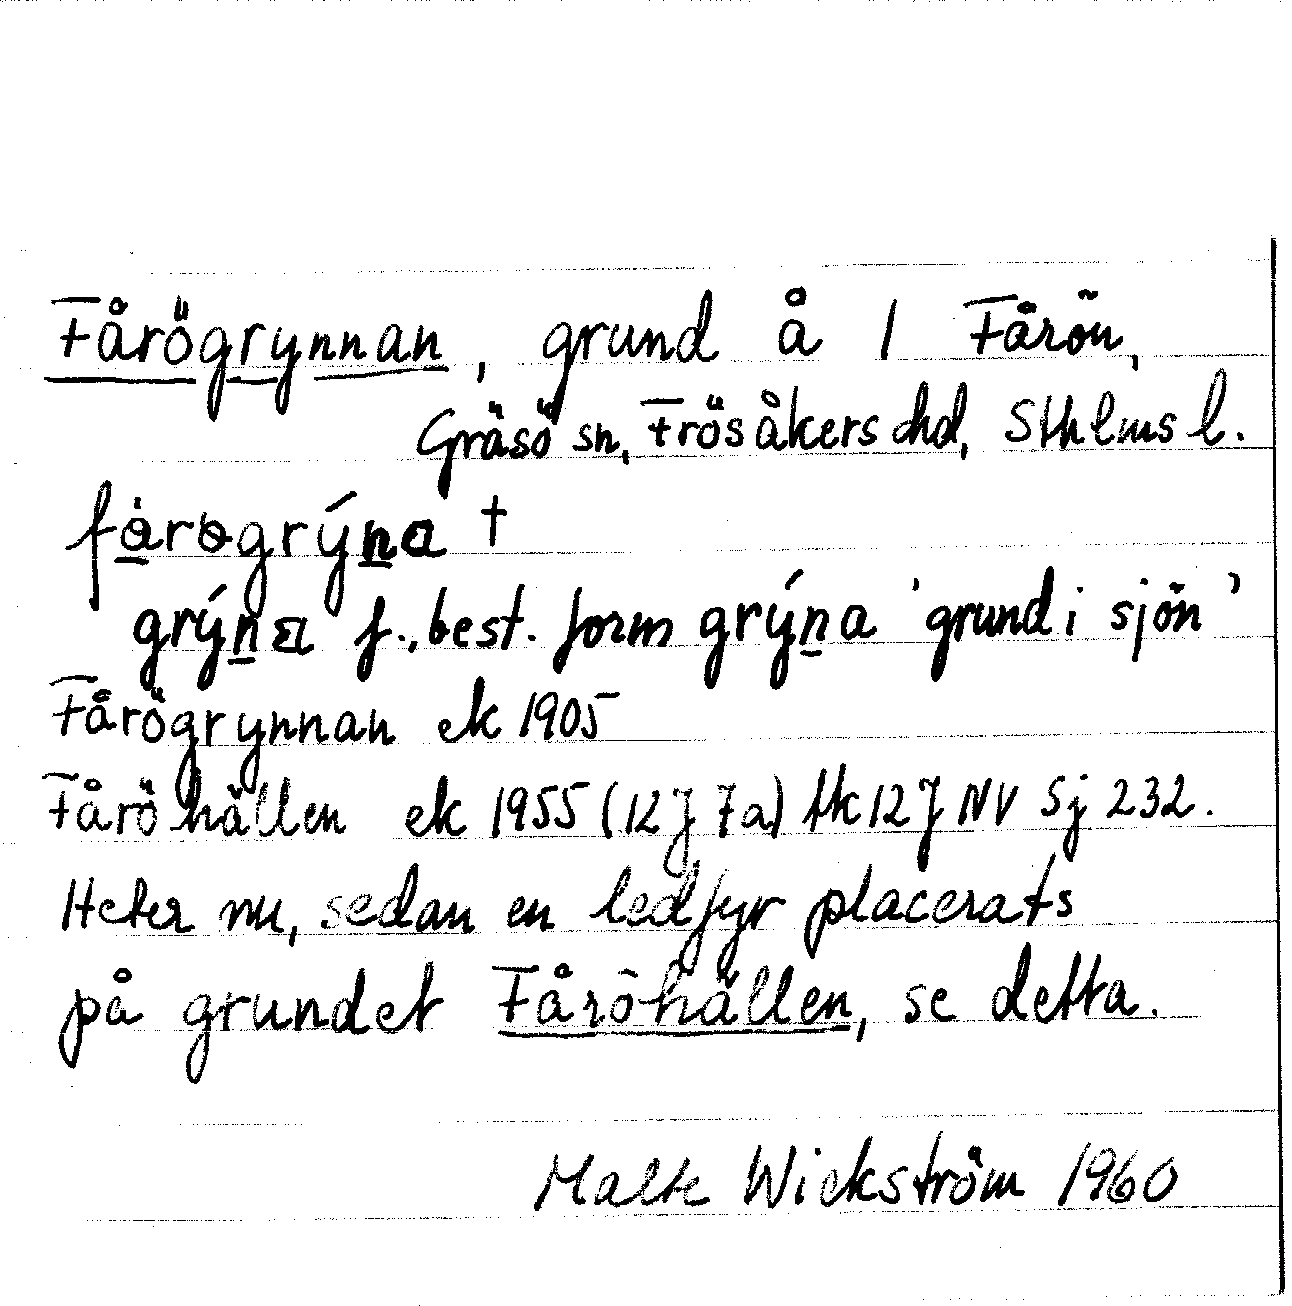 Fårögrynnan, grund å 1 Fårön,
Gräsö sn, Frösåkers chd, Sthlms l.
fårogrýna †
grýna f., best. form grýna 'grund i sjön'
Fårögrynnan ek 1905
Fåröhällen ek 1955 (12J 7a) tk 12J NV Sj 232.
Heter nu, sedan en ledfyr placerats
på grundet Fåröhällen, se detta.
Malte Wickström 1960